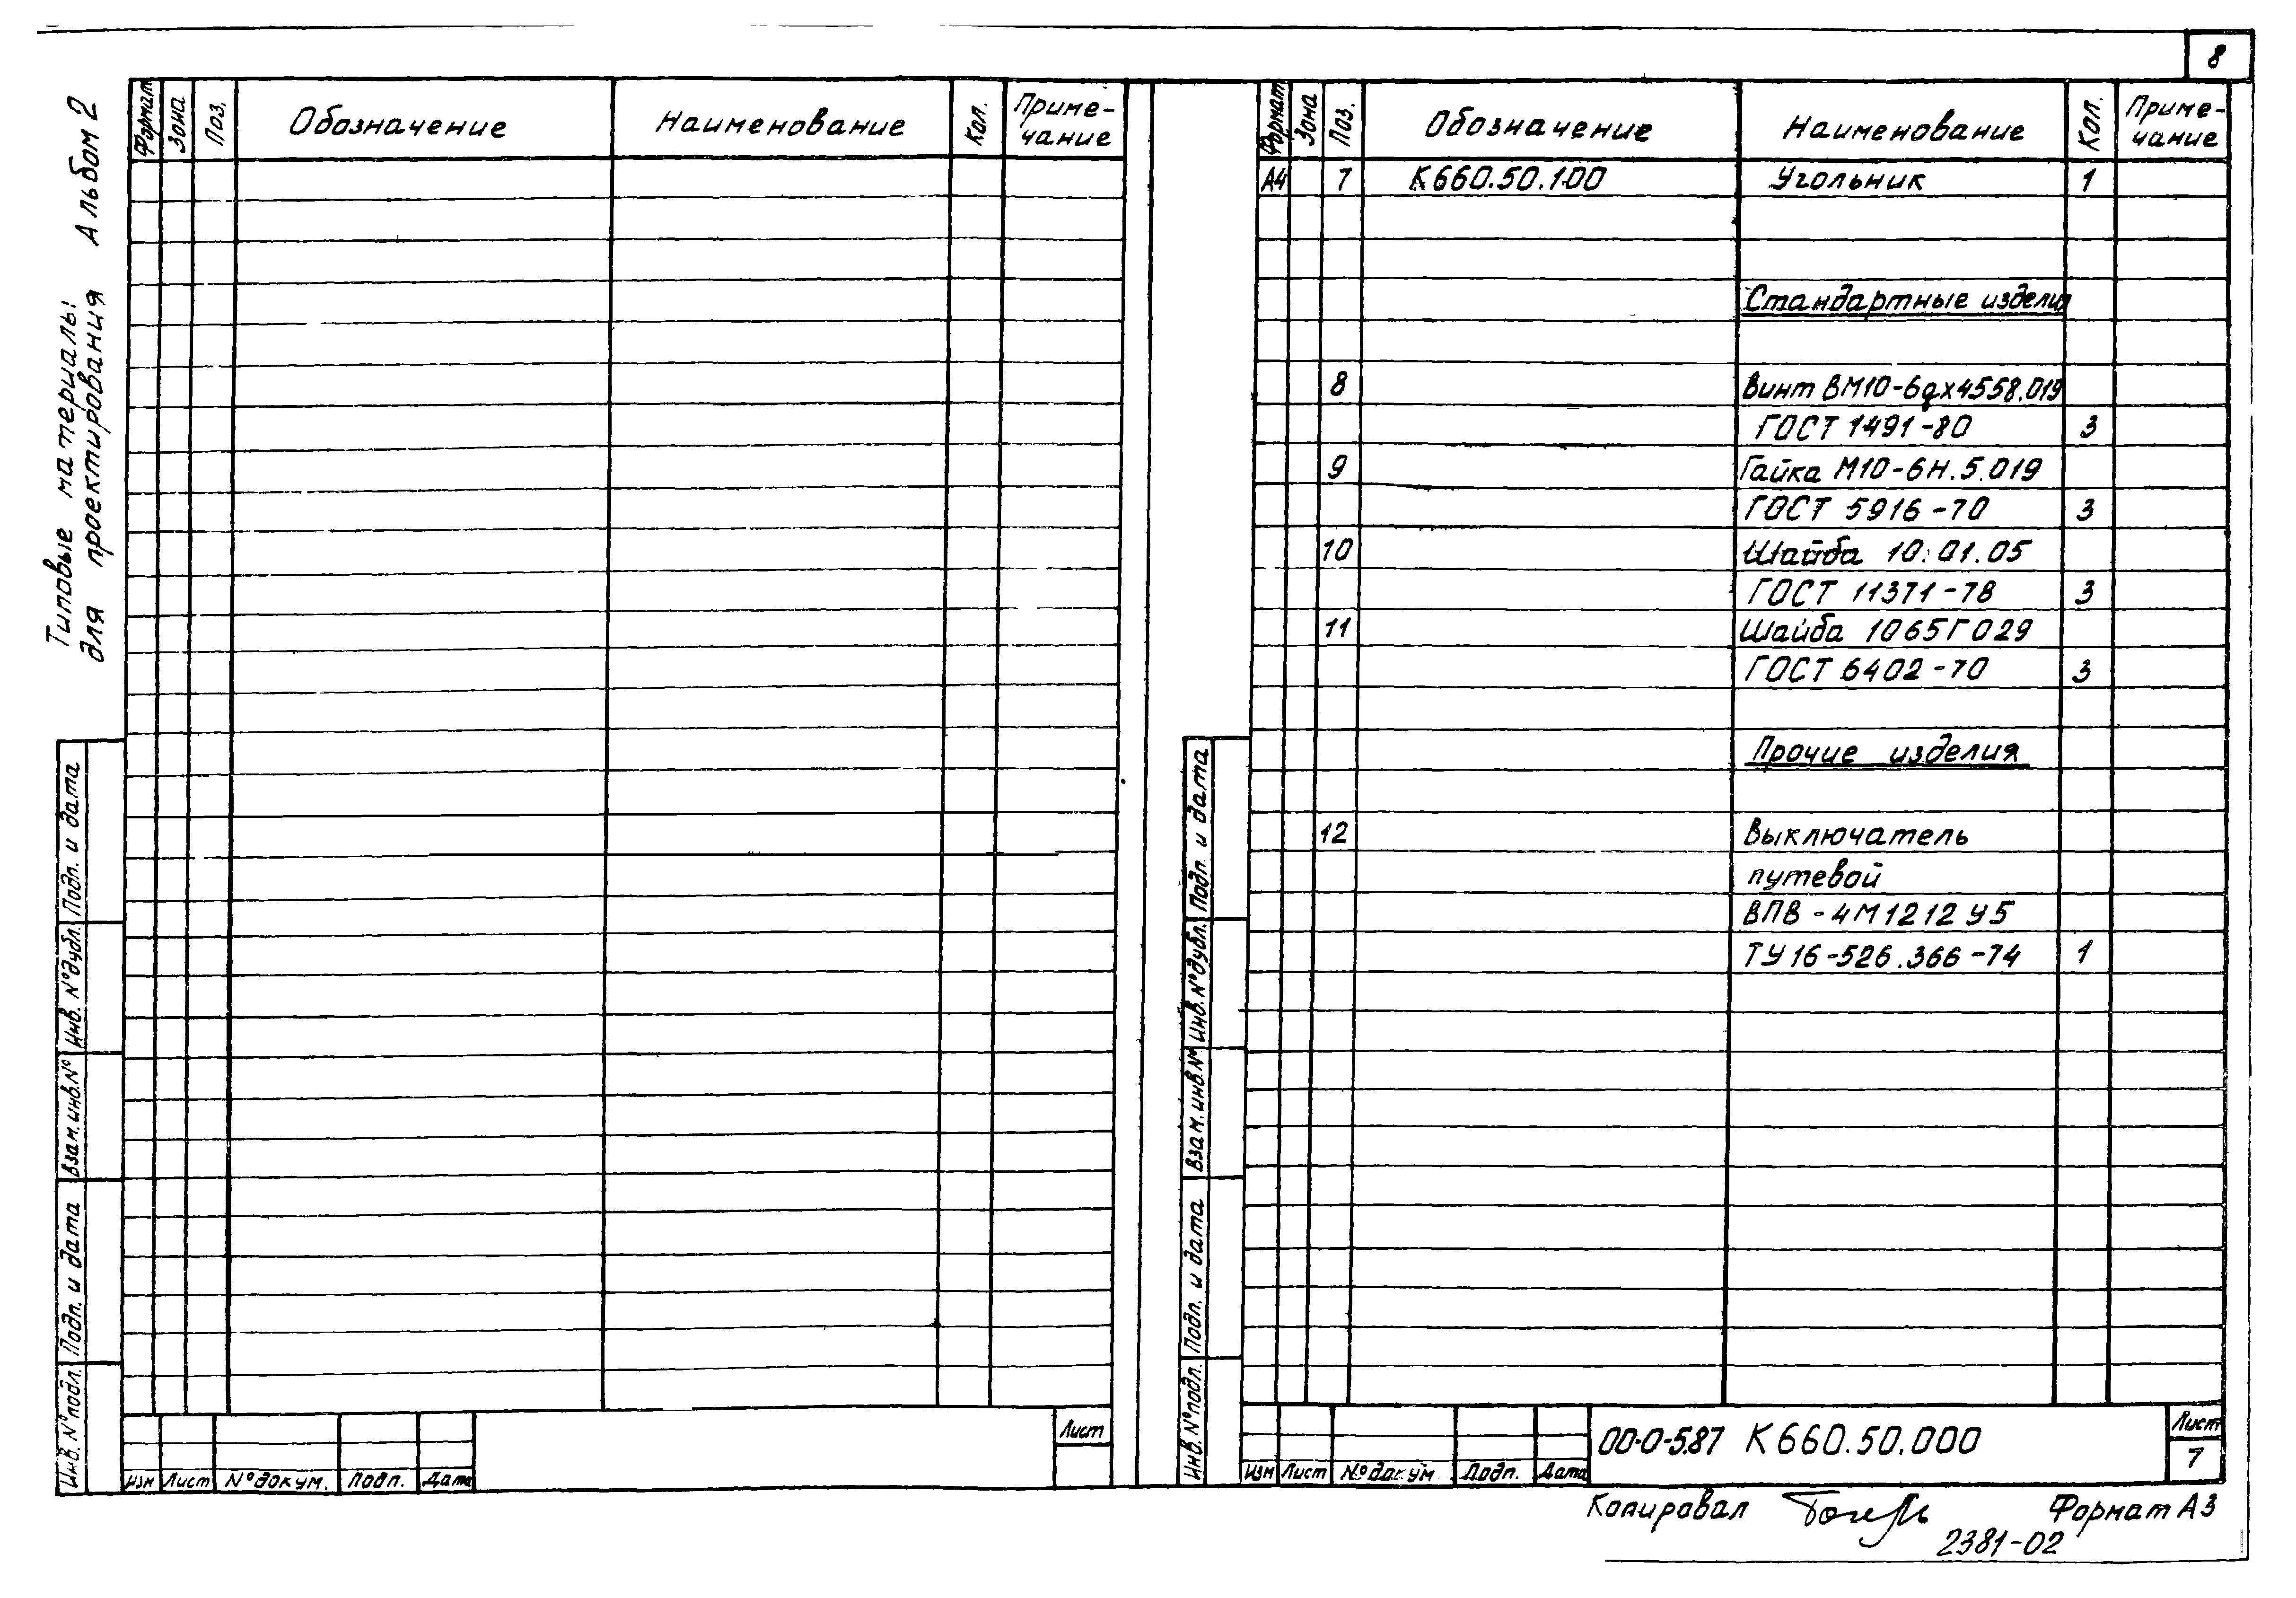 8
Типовые материалы
для проектирования Альбом 2
Формат Зона Поз. Обозначение Наименование Кол. Приме-
чание
Подп. и дата
Инв. № дубл.
Взам. инв. №
Подп. и дата
Инв. № подл.
Изм Лист № докум. Подп. Дата
Лист
Формат Зона Поз. Обозначение Наименование Кол. Приме-
чание
А4 7 К660.50.100 Угольник 1
Стандартные изделия
8 Винт ВМ10-6gх4558.019
ГОСТ 1491-80 3
9 Гайка М10-6Н.5.019
ГОСТ 5916-70 3
10 Шайба 10.01.05
ГОСТ 11371-78 3
11 Шайба 1065Г029
ГОСТ 6402-70 3
Прочие изделия
12 Выключатель
путевой
ВПВ-4М1212У5
ТУ16-526.366-74 1
Подп. и дата
Инв. № дубл.
Взам. инв. №
Подп. и дата
Инв. № подл.
Изм Лист № докум Подп. Дата
00-0-5.87 К660.50.000
Лист
7
Копировал Формат А3
2381-02